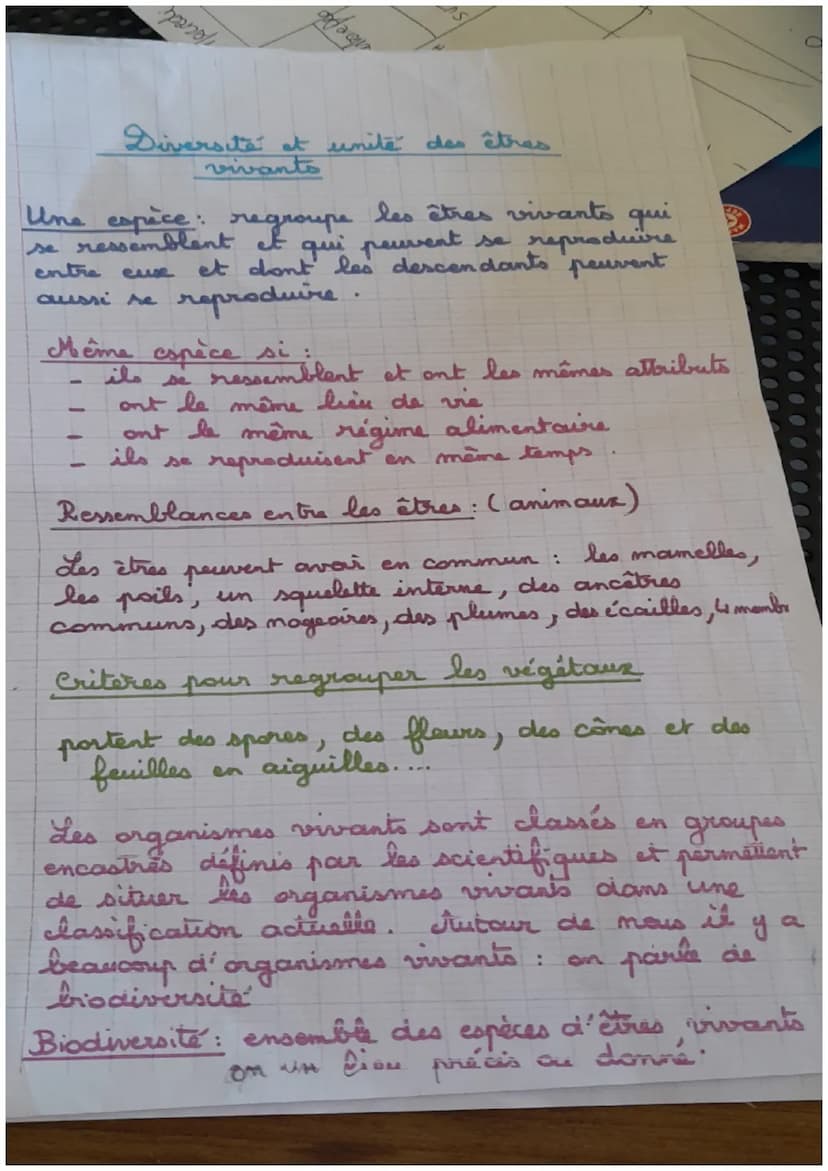 Diversité et unité des êtres
vivants
Une espèce : regroupe les êtres vivants qui
se ressemblent et qui peuvent se reproduire
entre eux et dont les descendants peuvent
aussi se reproduire .
Même espèce si :
- ils se ressemblent et ont les mêmes attributs
- ont le même lieu de vie
- ont le même régime alimentaire
- ils se reproduisent en même temps .
Ressemblances entre les êtres : ( animaux )
Les êtres peuvent avoir en commun : les mamelles,
les poils, un squelette interne, des ancêtres
communs, des nageoires, des plumes, des écailles, 4 membr
Critères pour regrouper les végétaux
portent des spores, des fleurs, des cônes et des
feuilles en aiguilles....
Les organismes vivants sont classés en groupes
encastrés définis par les scientifiques et permettant
de situer les organismes vivants dans une
classification actuelle. Autour de nous il y a
beaucoup d'organismes vivants : on parle de
biodiversité
Biodiversité : ensemble des espèces d'êtres vivants
en un lieu précis ou donné.